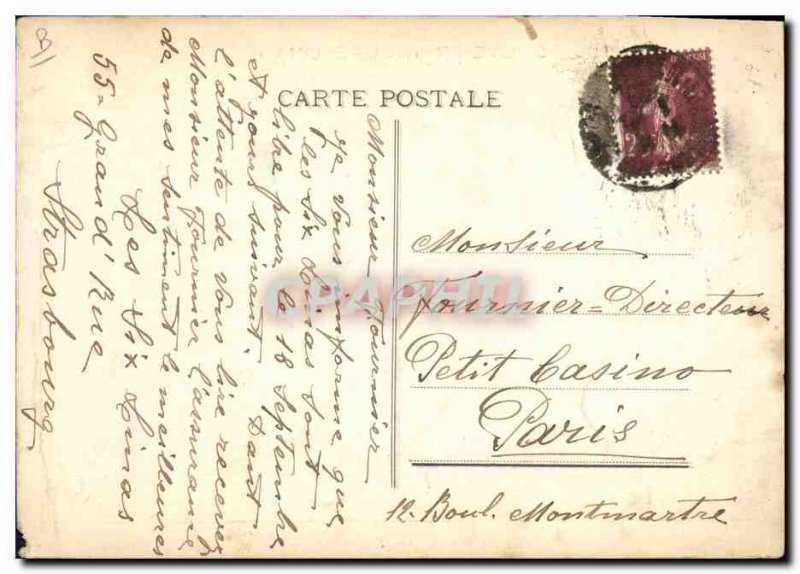 CARTE POSTALE
Monsieur Fournier
Je vous informe que
les Six Linas sont
libre pour le 18 Septembre
et jours suivant. Dant
l'attente de vous lire recever
Monsieur Fournier l'assurance
de mes sentiment le meilleures
Les Six Linas
55 - Grand'Rue
Strasbourg
Monsieur
Fournier = Directeur
Petit Casino
Paris
12. Boul. Montmartre
CPAPHIL